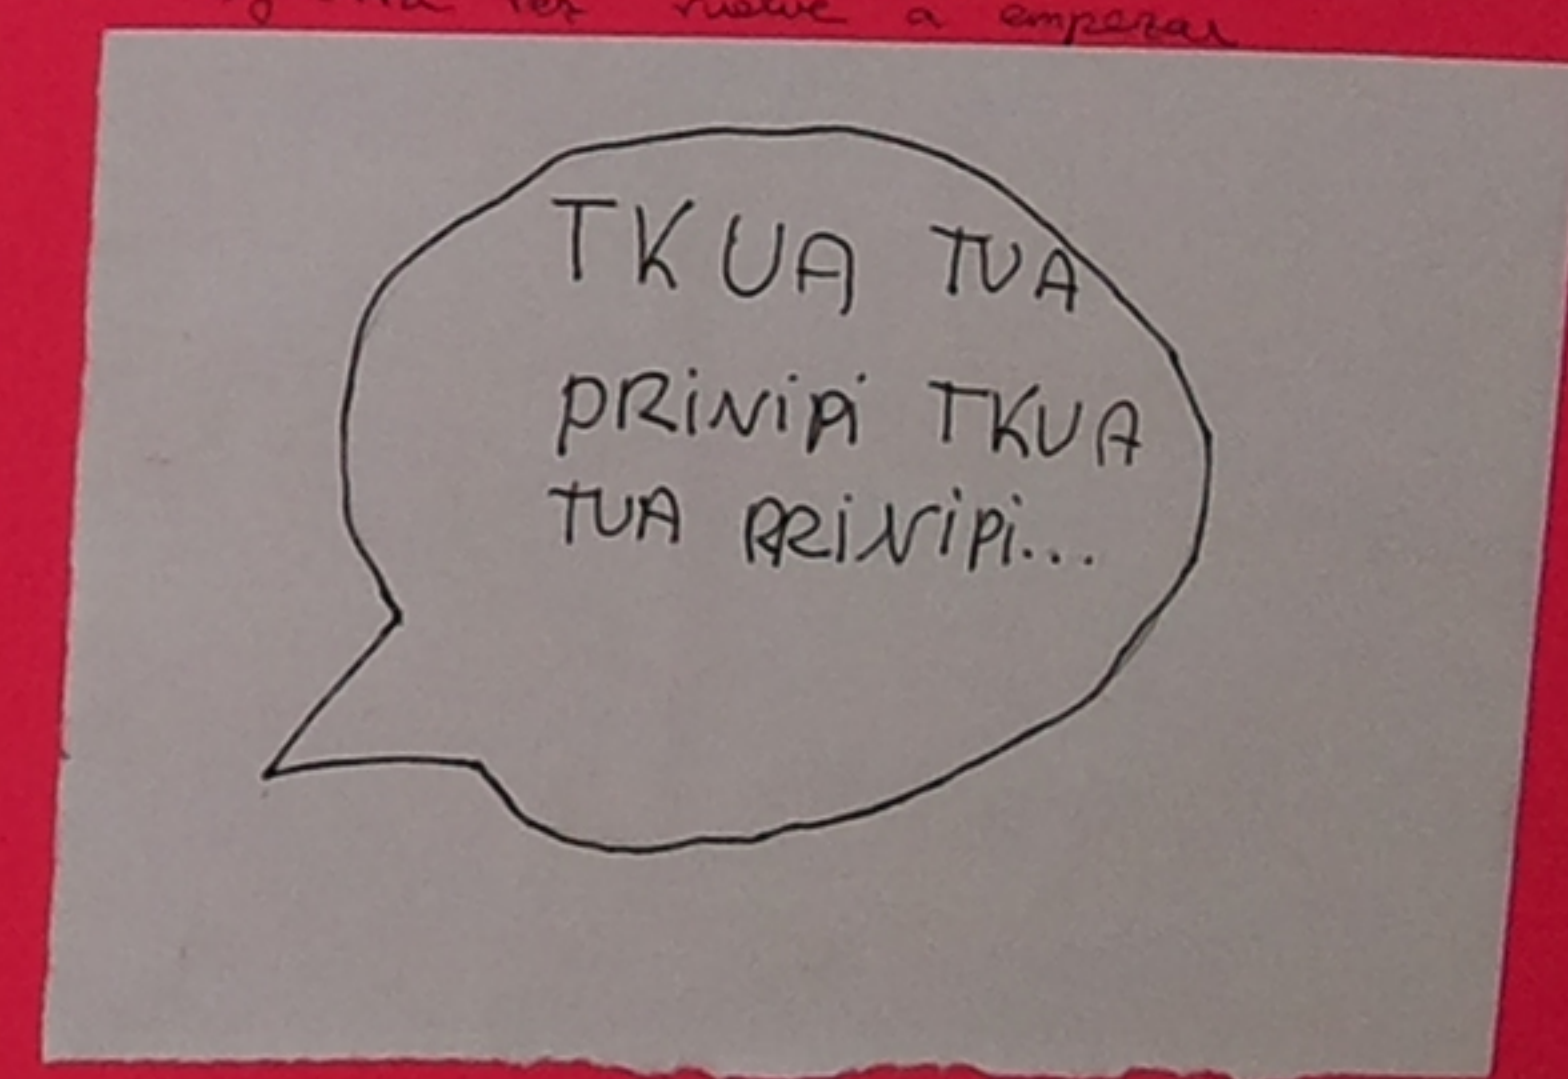 vez vuelve a empezar
TKUA TUA
PRiNiPi TKUA
TUA PRiNiPi...